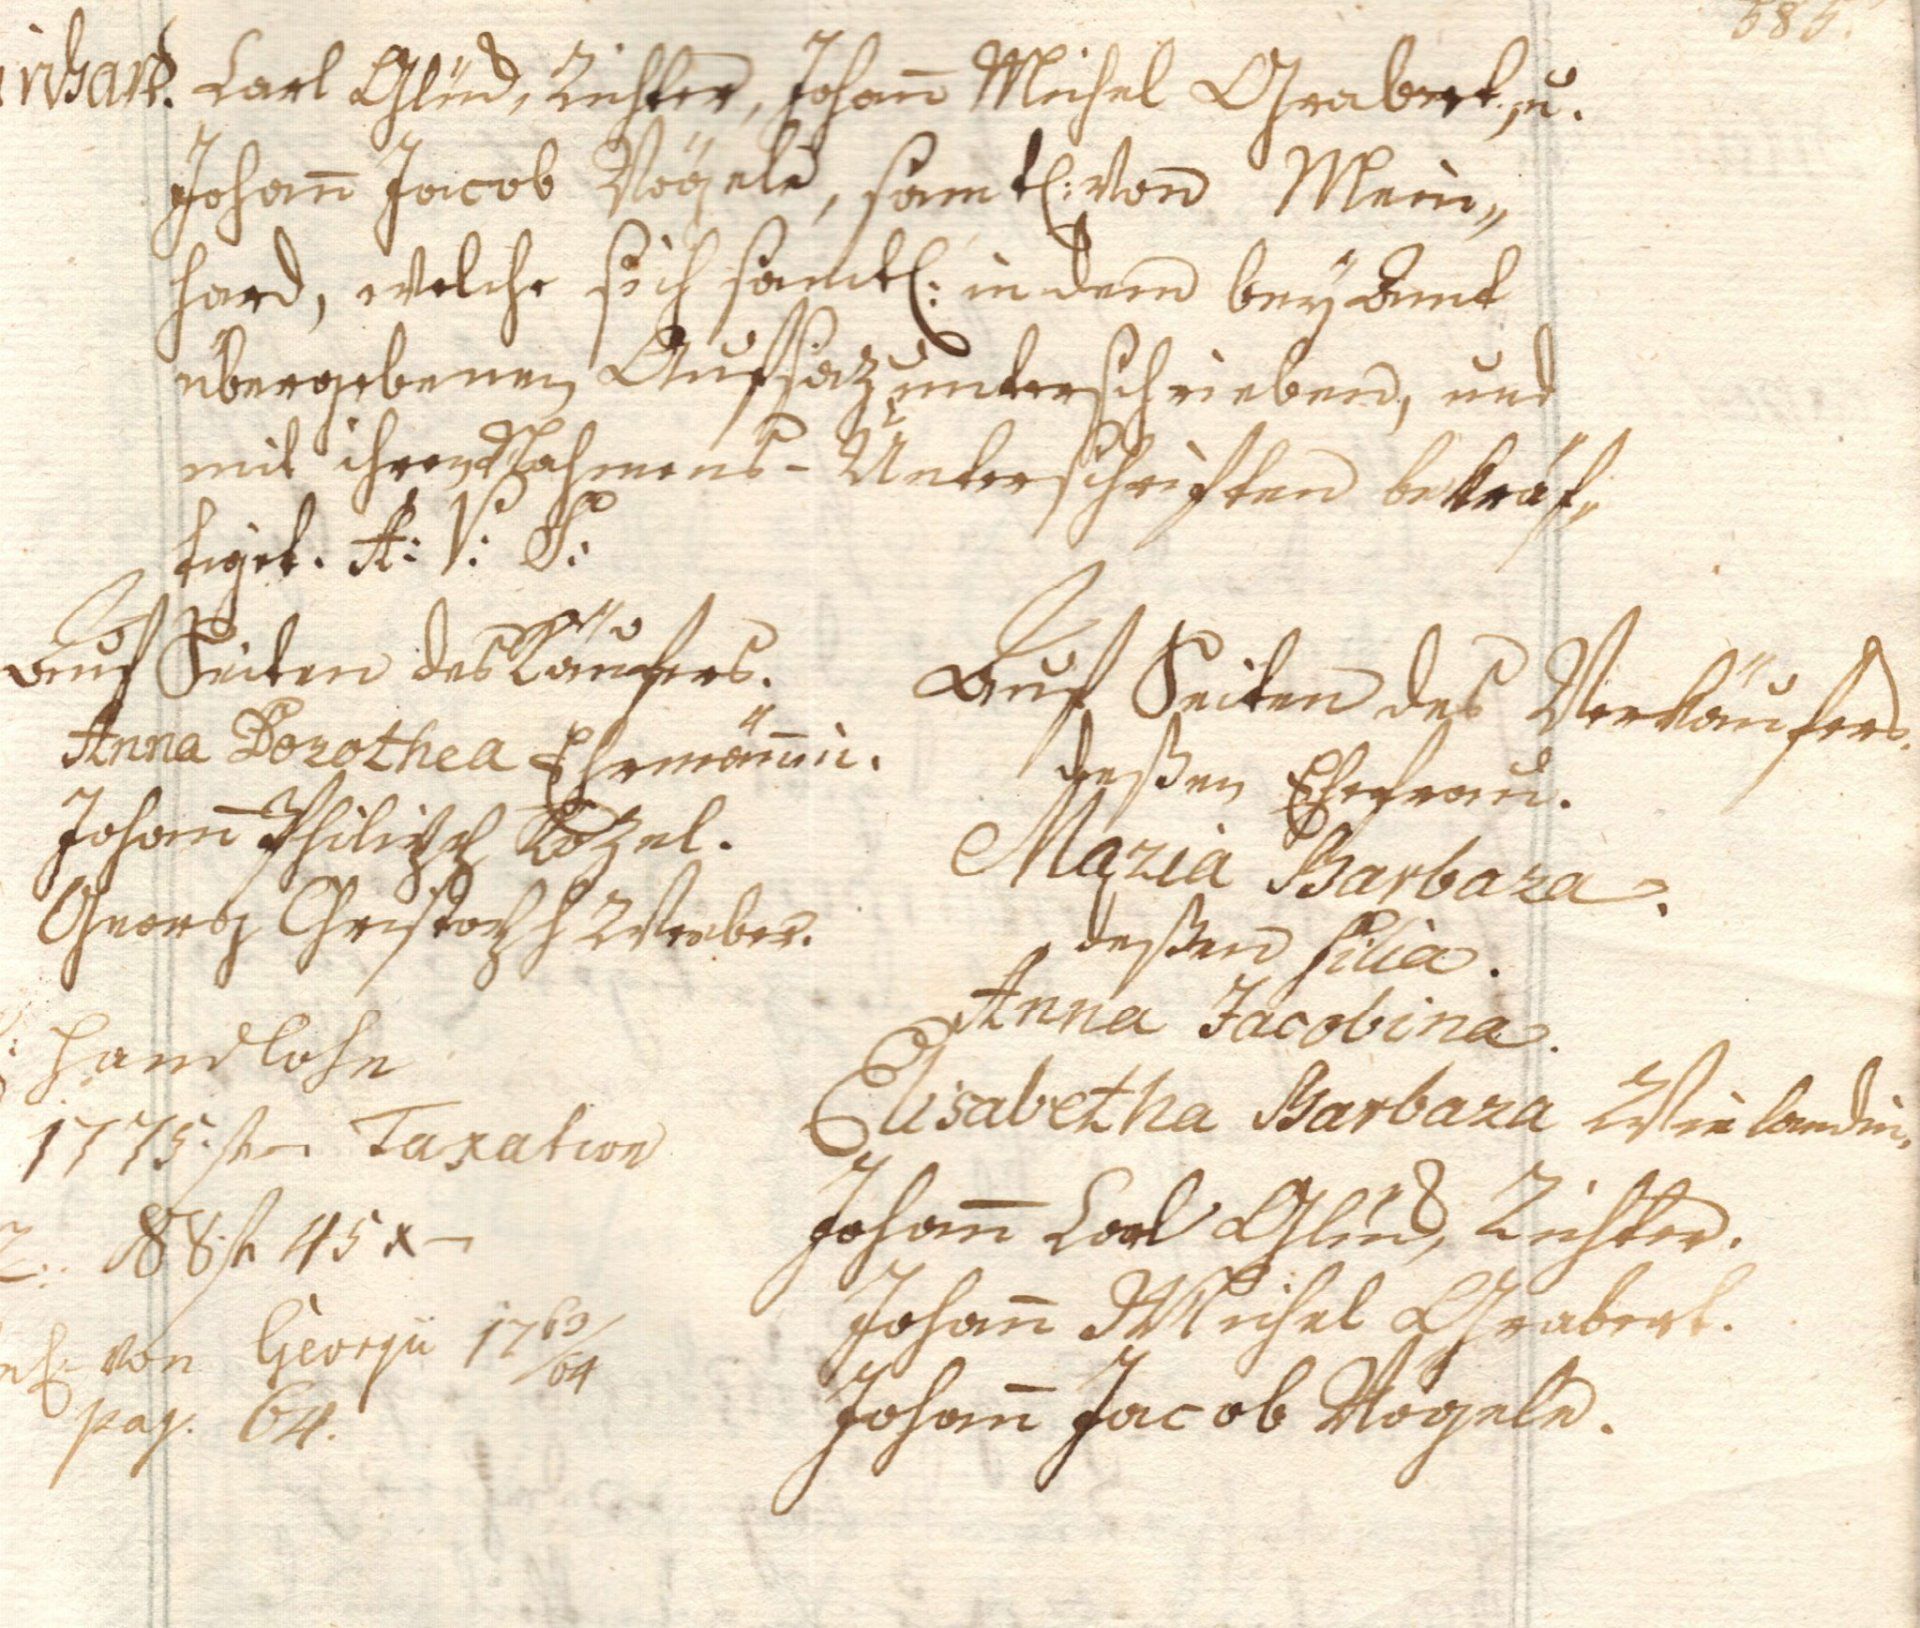 585.
inhard. Carl Glük, Richter, Johann Michel Grabert, u.
Johann Jacob Vögele, samtl: von Mein„
hard, welche sich samtl: in dem bey Amt
übergebenen Aufsaz unterschrieben, und
mit ihren Nahmens-Unterschriften bekräf„
tiget. A: V: S:
Auf Seiten des Käufers.
Anna Dorothea Ehrmännin.
Johann Philipp Kozel.
Georg Christoph Weeber.
Handlohn
1775. fl – Taxation
88. fl 45 x –
von Georgii 1763/64
pag. 64.
Auf Seiten des Verkäufers.
deßen Ehefrau.
Maria Barbara.
deßen filia.
Anna Jacobina.
Elisabetha Barbara Wielandin.
Johann Carl Glük, Richter.
Johann Michel Grabert.
Johann Jacob Vögele.